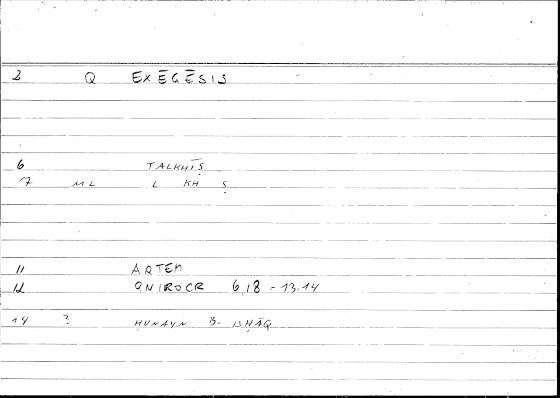 2 Q EXĒGĒSIS
6 TALKHĪṢ
7 ML L KH Ṣ
11 ARTEM
12 ONIROCR 6,18 - 13.14
14 ? ḤUNAYN B- ISḤĀQ